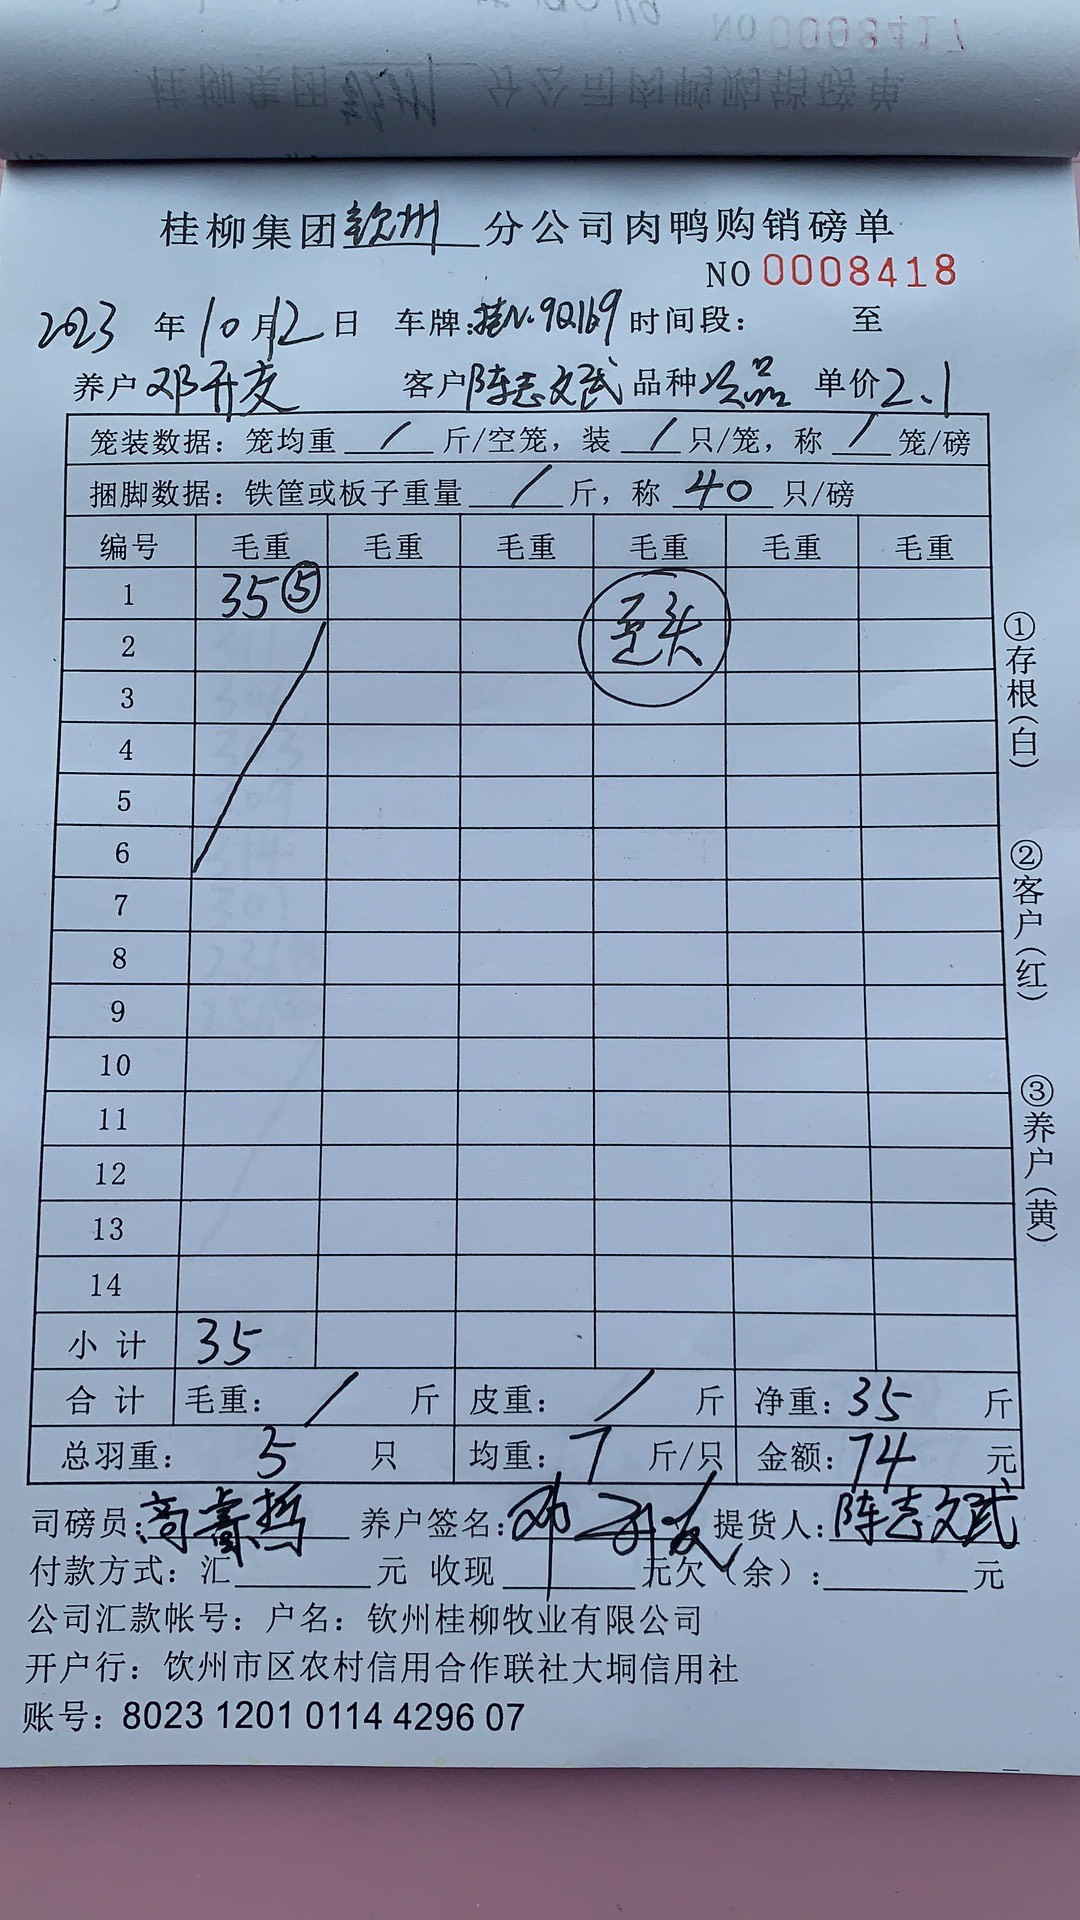 NO 0008417
桂柳集团钦州 分公司肉鸭购销磅单
桂柳集团钦州分公司肉鸭购销磅单
NO 0008418
2023 年 10 月 12 日 车牌:桂N·9Q169 时间段: 至
养户 邓开友 客户 陈志文武 品种 次品 单价 2.1
笼装数据: 笼均重 / 斤/空笼, 装 / 只/笼, 称 / 笼/磅
捆脚数据: 铁筐或板子重量 / 斤, 称 40 只/磅
编号 毛重 毛重 毛重 毛重 毛重 毛重
1 35⑤
2 歪头
3
4
5
6
7
8
9
10
11
12
13
14
小计 35
合计 毛重: / 斤 皮重: / 斤 净重: 35 斤
总羽重: 5 只 均重: 7 斤/只 金额: 74 元
司磅员: 养户签名: 邓开友 提货人: 陈志文武
付款方式: 汇 元 收现 元欠(余): 元
公司汇款帐号: 户名: 钦州桂柳牧业有限公司
开户行: 饮州市区农村信用合作联社大垌信用社
账号: 8023 1201 0114 4296 07
①存根(白)
②客户(红)
③养户(黄)